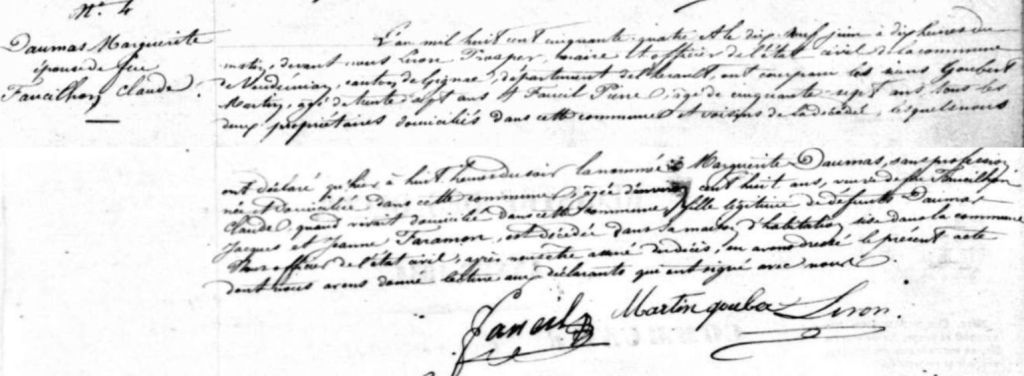 N° 4
Daumas Marguerite
épouse de feu
Faucilhon Claude.
L'an mil huit cent cinquante quatre et le dix neuf juin à dix heures du
matin, devant nous Liron Prosper, maire et officier de l'état civil de la commune
de, canton de Gignac, département de l'hérault, ont comparu les sieurs Goubert
Martin, agé de trente sept ans et Faucil Pierre, agé de cinquante sept ans, tous les
deux propriétaires domiciliés dans cette commune et voisins de la décédée, lesquels nous
ont déclaré qu'hier à huit heures du soir la nommée Marguerite Daumas, sans profession
née et domiciliée dans cette commune, agée d'environ cent huit ans, veuve de feu Faucilhon
Claude, quand vivait domicilié dans cette commune, fille légitime de défunts Daumas
Jacques et Jeanne Faramon, est décédée dans sa maison d'habitation sise dans la commune
Nous officier de l'état civil, après nous être assuré du décès, en avons dressé le présent acte
dont nous avons donné lecture aux déclarants qui ont signé avec nous.
Faucil Martin goube Liron.